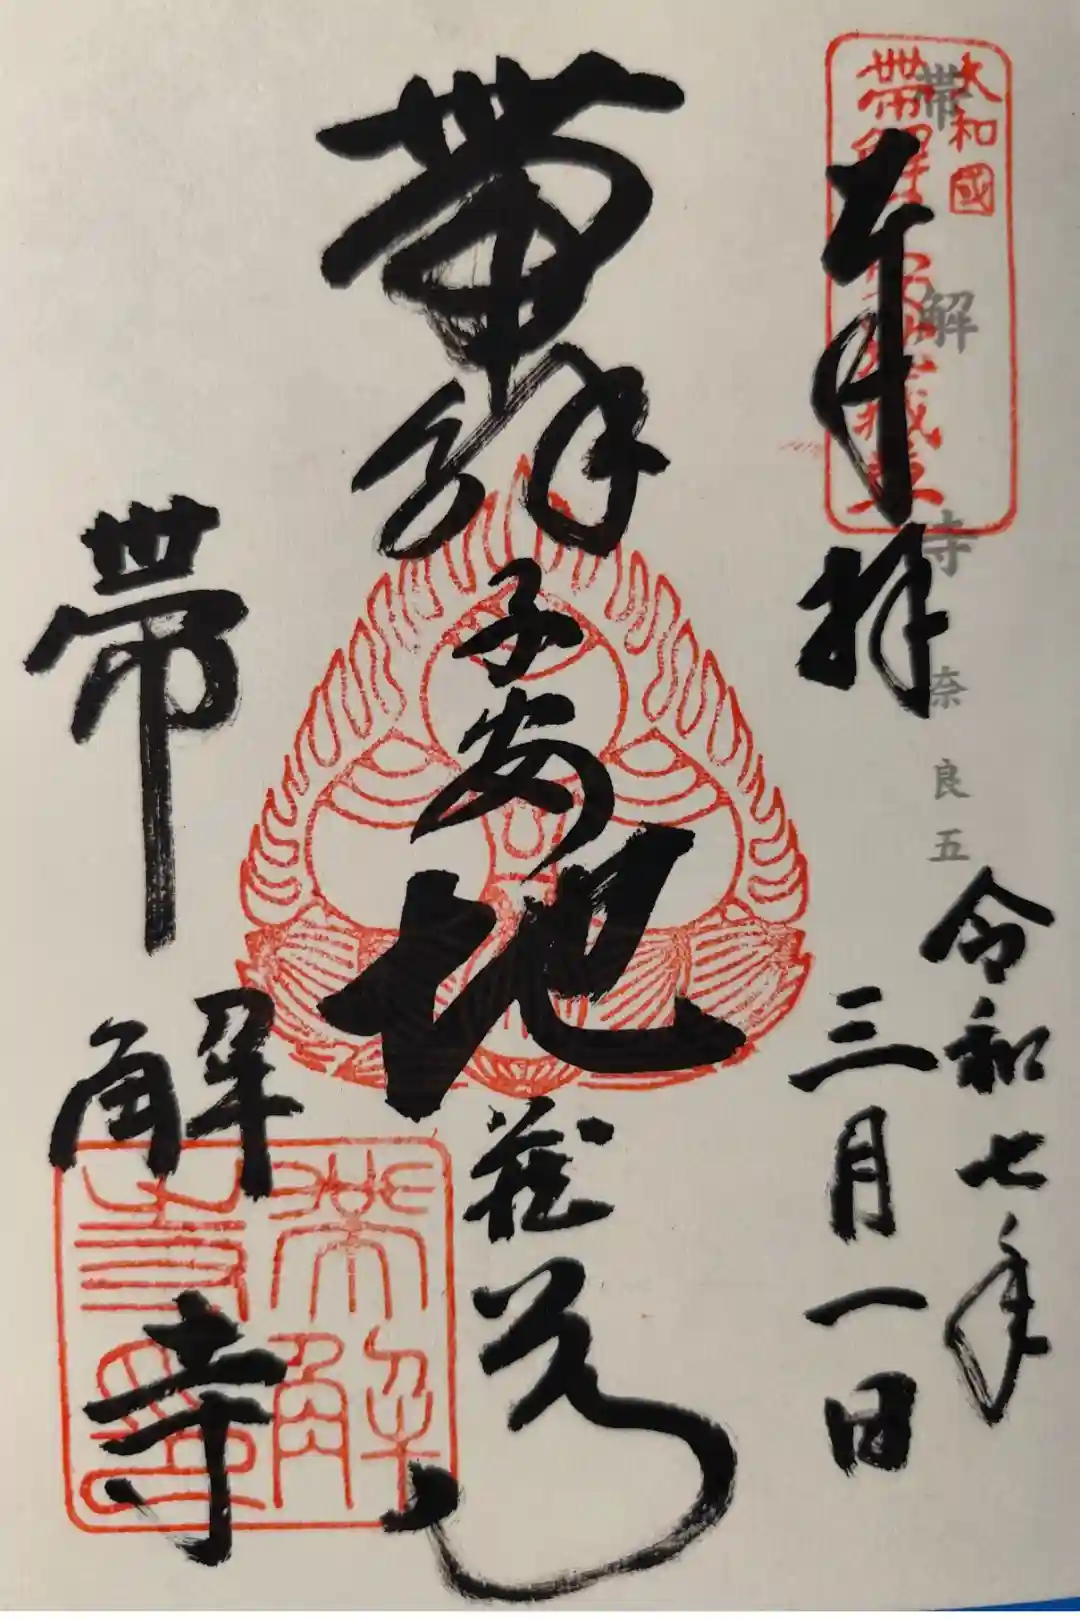 大和國
帶解子安地蔵
帯解寺 奈良五
奉拝
令和七年
三月一日
帶解子安地蔵尊
帶解寺
帶解寺印